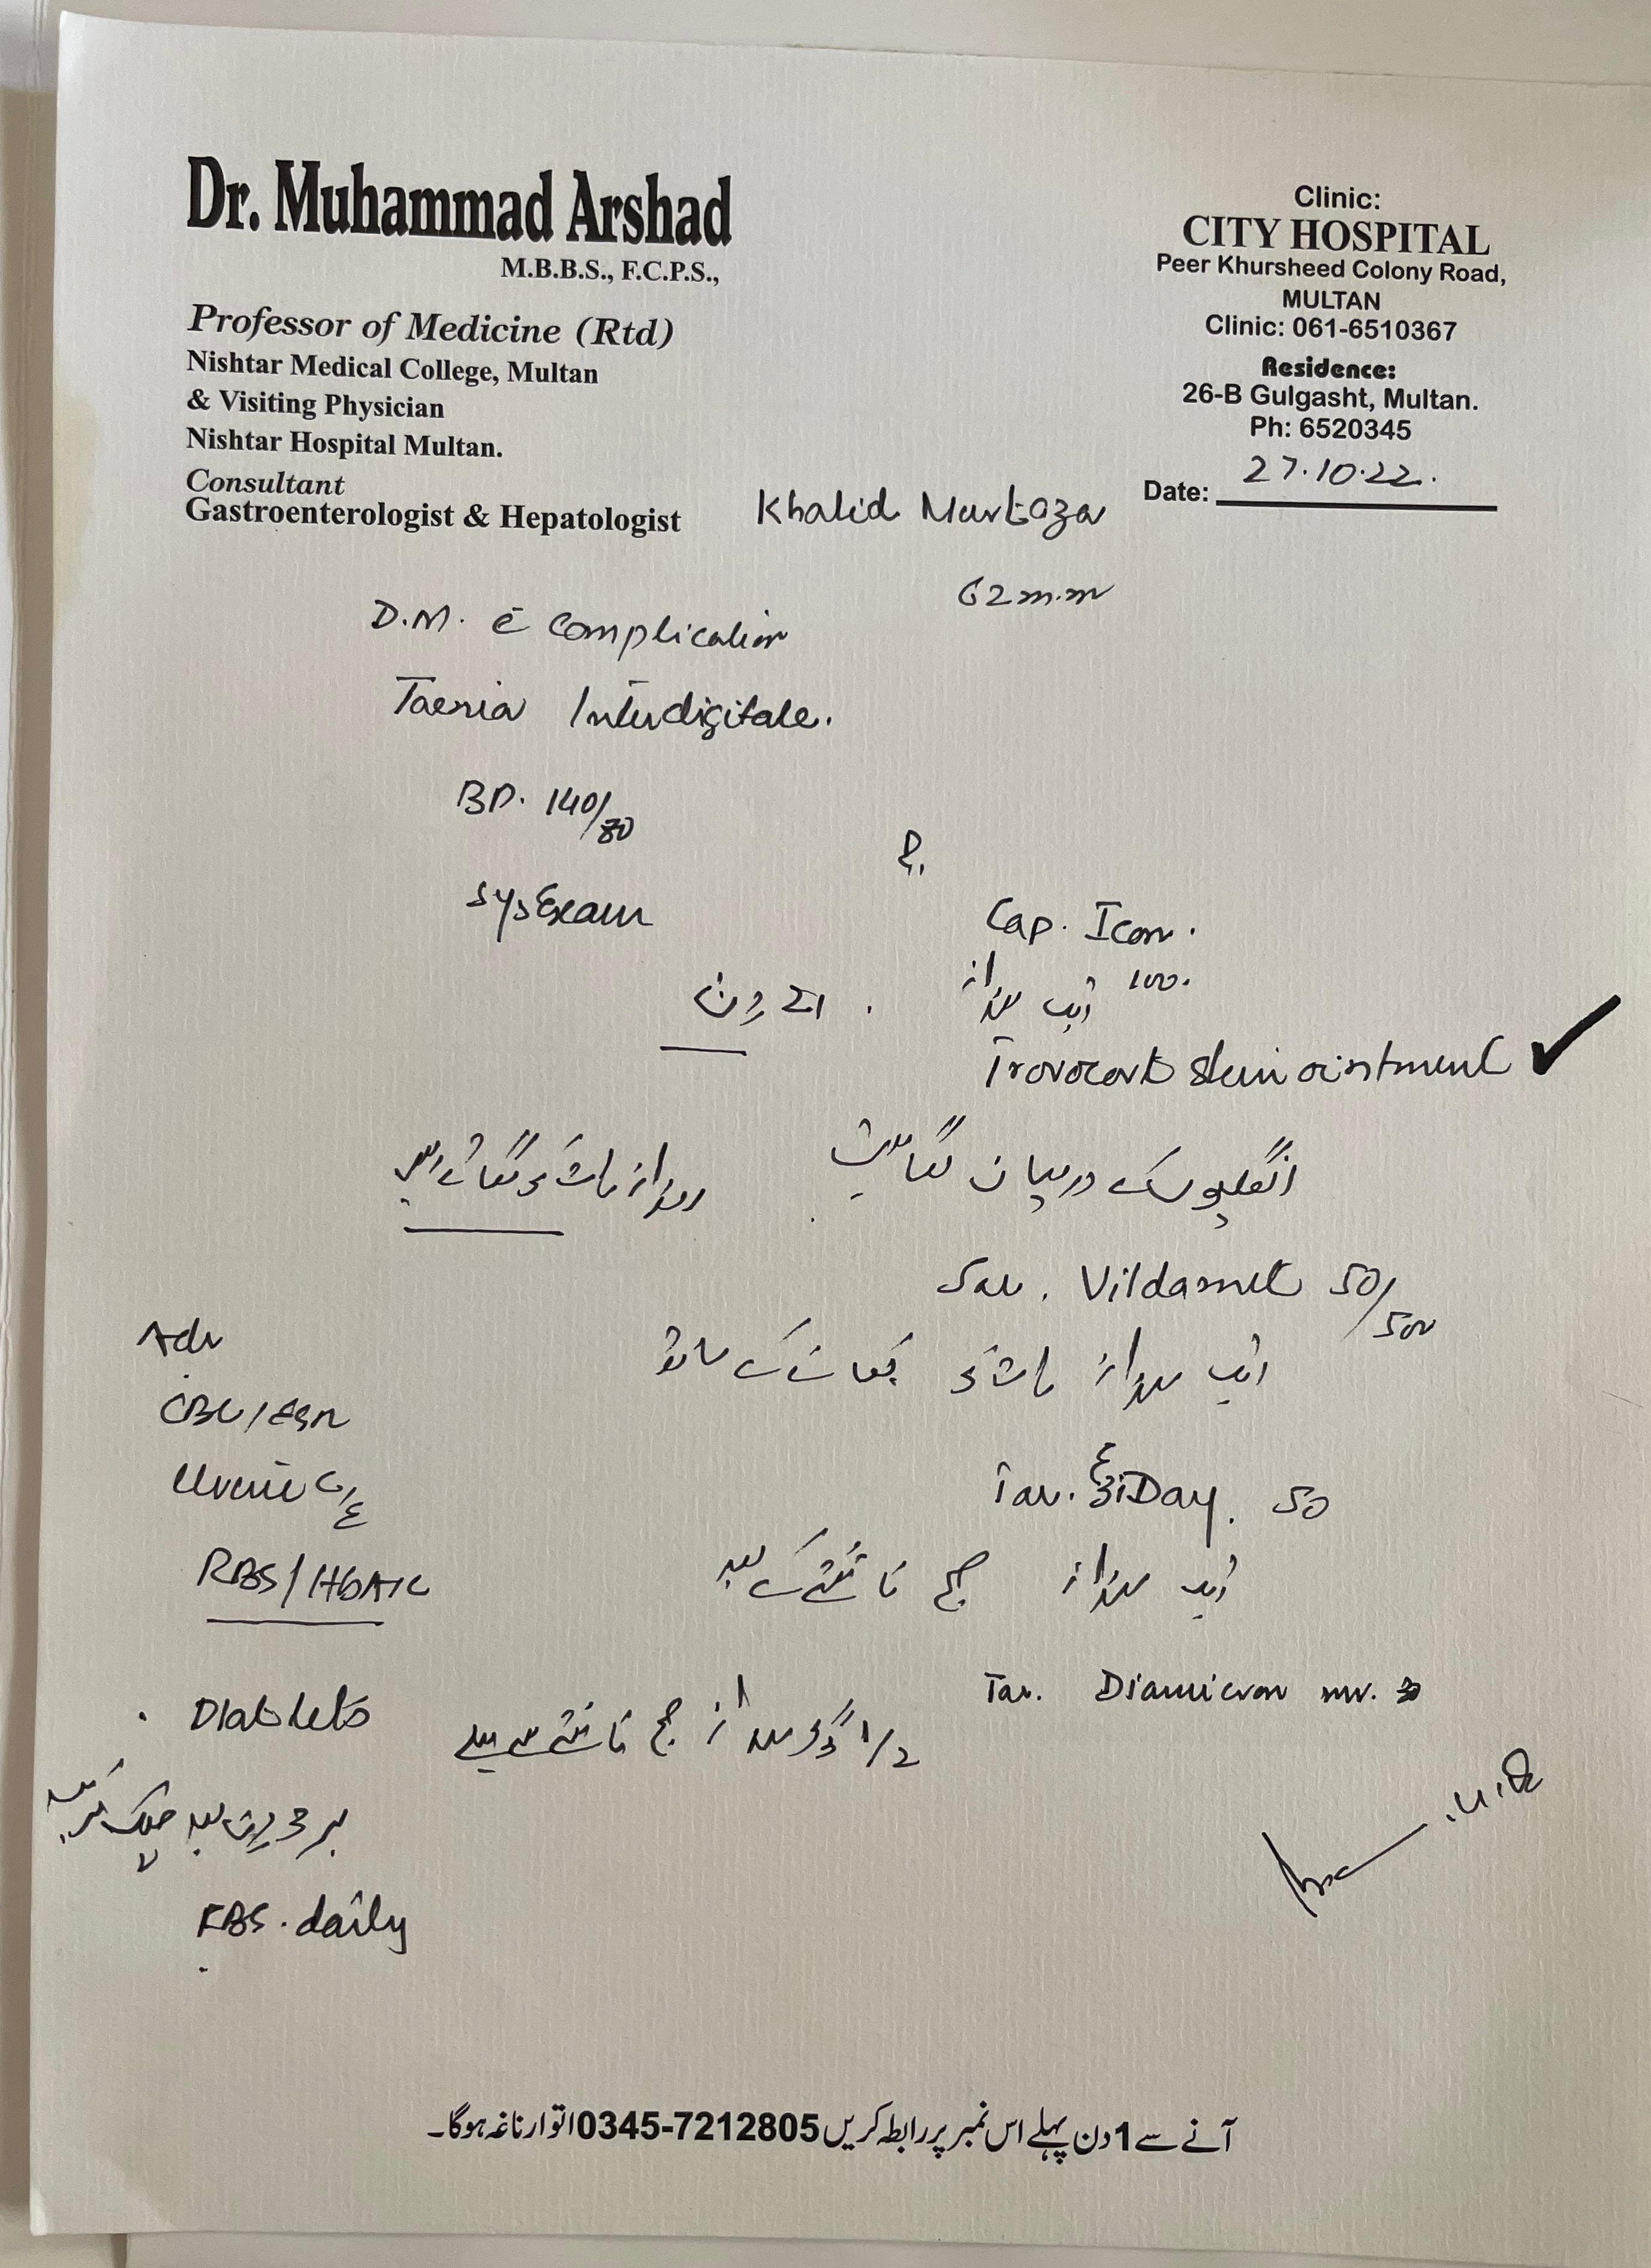 Dr. Muhammad Arshad
M.B.B.S., F.C.P.S.,
Professor of Medicine (Rtd)
Nishtar Medical College, Multan
& Visiting Physician
Nishtar Hospital Multan.
Consultant
Gastroenterologist & Hepatologist
Clinic:
CITY HOSPITAL
Peer Khursheed Colony Road,
MULTAN
Clinic: 061-6510367
Residence:
26-B Gulgasht, Multan.
Ph: 6520345
Date: 27.10.22.
Khalid Murtaza
D.M. c̄ Complication
Taenia Interdigitale.
BP. 140/80
Sys Exam
Cap. Icon.
100.
ایک روزانہ
دن
Trovocort skin ointment ✓
انگلیوں کے درمیان لگائیں
روزانہ ناشتہ
Vildamet 50/500
ایک روزانہ ناشتہ کھانے کے ساتھ
Adv
CBC/ESR
Urine C/E
RBS/HbA1c
Day. 50
ایک روزانہ صبح ناشتے کے بعد
Tab. Diamicron mr.
1/2 گولی روزانہ صبح ناشتے سے پہلے
دن بعد چیک کریں
FBS. daily
آنے سے 1 دن پہلے اس نمبر پر رابطہ کریں 0345-7212805 اتوار ناغہ ہوگا۔